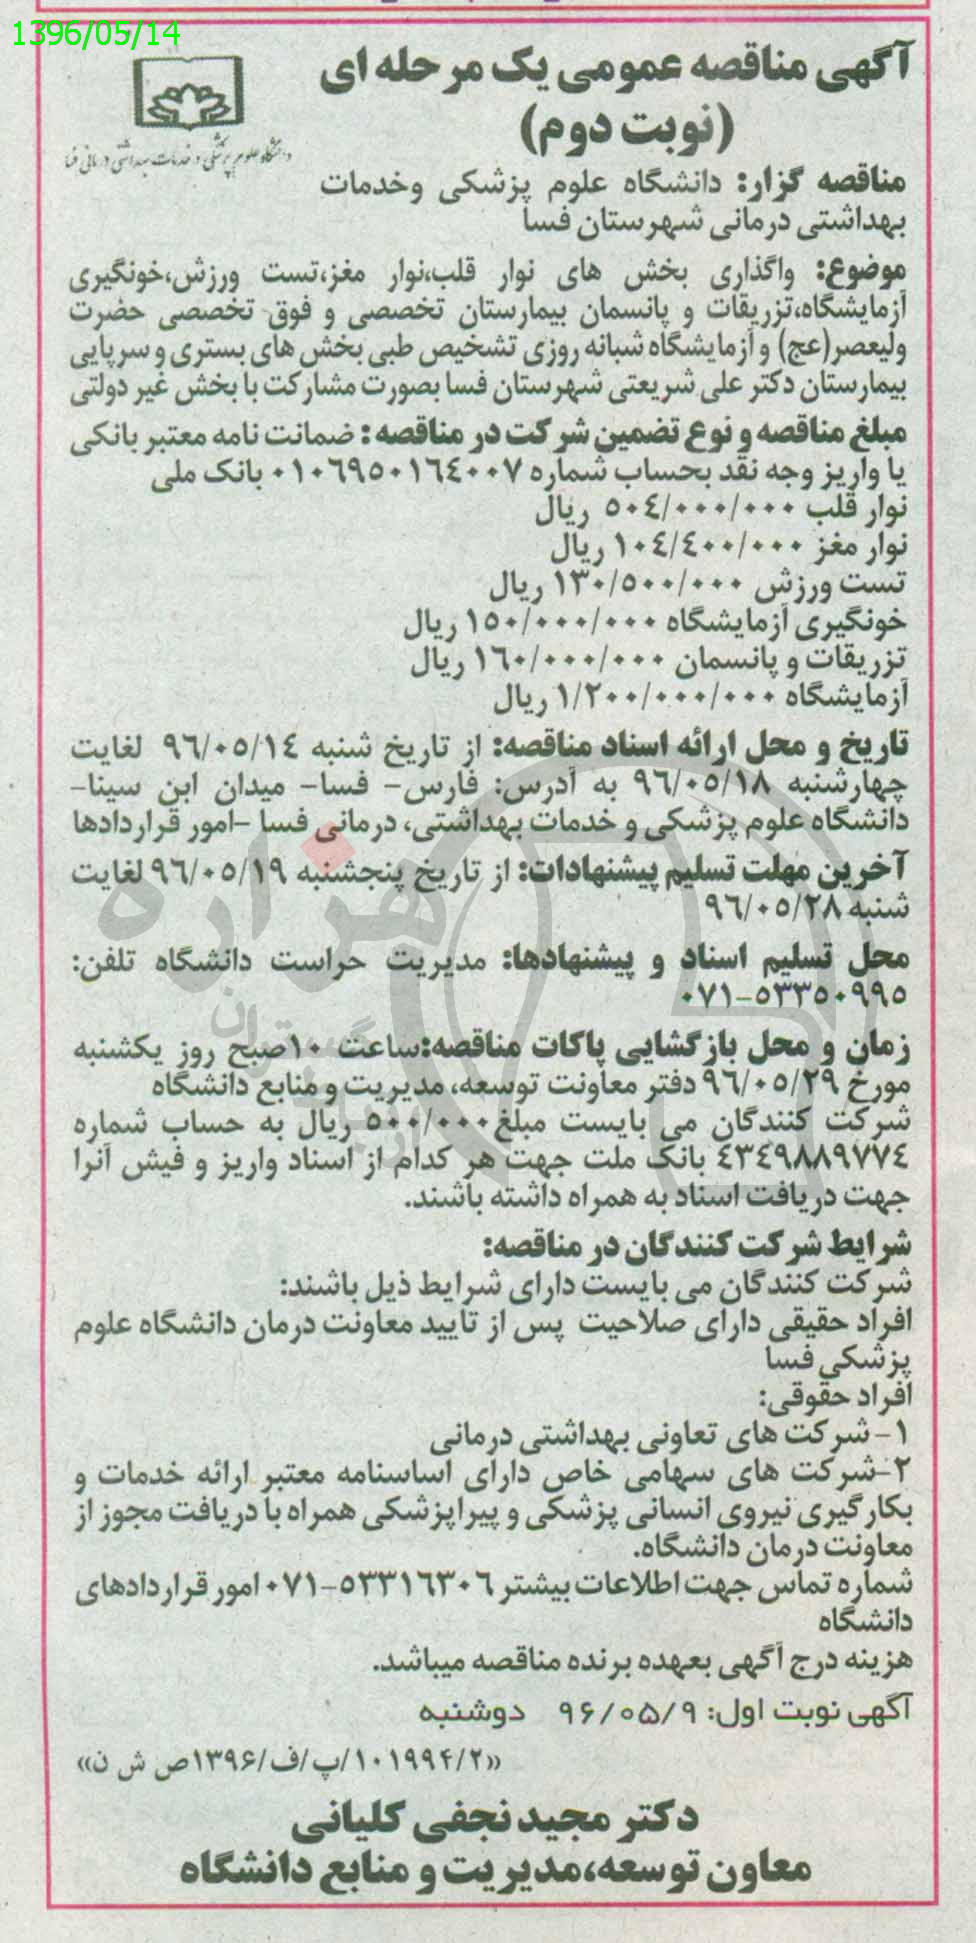 1396/05/14
آگهی مناقصه عمومی یک مرحله ای
(نوبت دوم)
دانشگاه علوم پزشکی و خدمات بهداشتی درمانی فسا
مناقصه گزار: دانشگاه علوم پزشکی وخدمات
بهداشتی درمانی شهرستان فسا
موضوع: واگذاری بخش های نوار قلب،نوار مغز،تست ورزش،خونگیری
آزمایشگاه،تزریقات و پانسمان بیمارستان تخصصی و فوق تخصصی حضرت
ولیعصر(عج) و آزمایشگاه شبانه روزی تشخیص طبی بخش های بستری و سرپایی
بیمارستان دکتر علی شریعتی شهرستان فسا بصورت مشارکت با بخش غیر دولتی
مبلغ مناقصه و نوع تضمین شرکت در مناقصه: ضمانت نامه معتبر بانکی
یا واریز وجه نقد بحساب شماره ۰۱۰۶۹۵۰۱۶۴۰۰۷ بانک ملی
نوار قلب ۵۰۴/۰۰۰/۰۰۰ ریال
نوار مغز ۱۰۴/۴۰۰/۰۰۰ ریال
تست ورزش ۱۳۰/۵۰۰/۰۰۰ ریال
خونگیری آزمایشگاه ۱۵۰/۰۰۰/۰۰۰ ریال
تزریقات و پانسمان ۱۶۰/۰۰۰/۰۰۰ ریال
آزمایشگاه ۱/۲۰۰/۰۰۰/۰۰۰ ریال
تاریخ و محل ارائه اسناد مناقصه: از تاریخ شنبه ۹۶/۰۵/۱۴ لغایت
چهارشنبه ۹۶/۰۵/۱۸ به آدرس: فارس- فسا- میدان ابن سینا-
دانشگاه علوم پزشکی و خدمات بهداشتی، درمانی فسا -امور قراردادها
آخرین مهلت تسلیم پیشنهادات: از تاریخ پنجشنبه ۹۶/۰۵/۱۹ لغایت
شنبه ۹۶/۰۵/۲۸
محل تسلیم اسناد و پیشنهادها: مدیریت حراست دانشگاه تلفن:
۰۷۱-۵۳۳۵۰۹۹۵
زمان و محل بازگشایی پاکات مناقصه:ساعت ۱۰صبح روز یکشنبه
مورخ ۹۶/۰۵/۲۹ دفتر معاونت توسعه، مدیریت و منابع دانشگاه
شرکت کنندگان می بایست مبلغ۵۰۰/۰۰۰ ریال به حساب شماره
۴۳۴۹۸۸۹۷۷۴ بانک ملت جهت هر کدام از اسناد واریز و فیش آنرا
جهت دریافت اسناد به همراه داشته باشند.
شرایط شرکت کنندگان در مناقصه:
شرکت کنندگان می بایست دارای شرایط ذیل باشند:
افراد حقیقی دارای صلاحیت پس از تایید معاونت درمان دانشگاه علوم
پزشکی فسا
افراد حقوقی:
۱- شرکت های تعاونی بهداشتی درمانی
۲-شرکت های سهامی خاص دارای اساسنامه معتبر ارائه خدمات و
بکارگیری نیروی انسانی پزشکی و پیراپزشکی همراه با دریافت مجوز از
معاونت درمان دانشگاه.
شماره تماس جهت اطلاعات بیشتر ۰۷۱-۵۳۳۱۶۳۰۶ امور قراردادهای
دانشگاه
هزینه درج آگهی بعهده برنده مناقصه میباشد.
آگهی نوبت اول: ۹۶/۰۵/۹ دوشنبه
«۱۰۱۹۹۴/۲/پ/ف/۱۳۹۶ص ش ن»
دکتر مجید نجفی کلیانی
معاون توسعه،مدیریت و منابع دانشگاه
هزاره